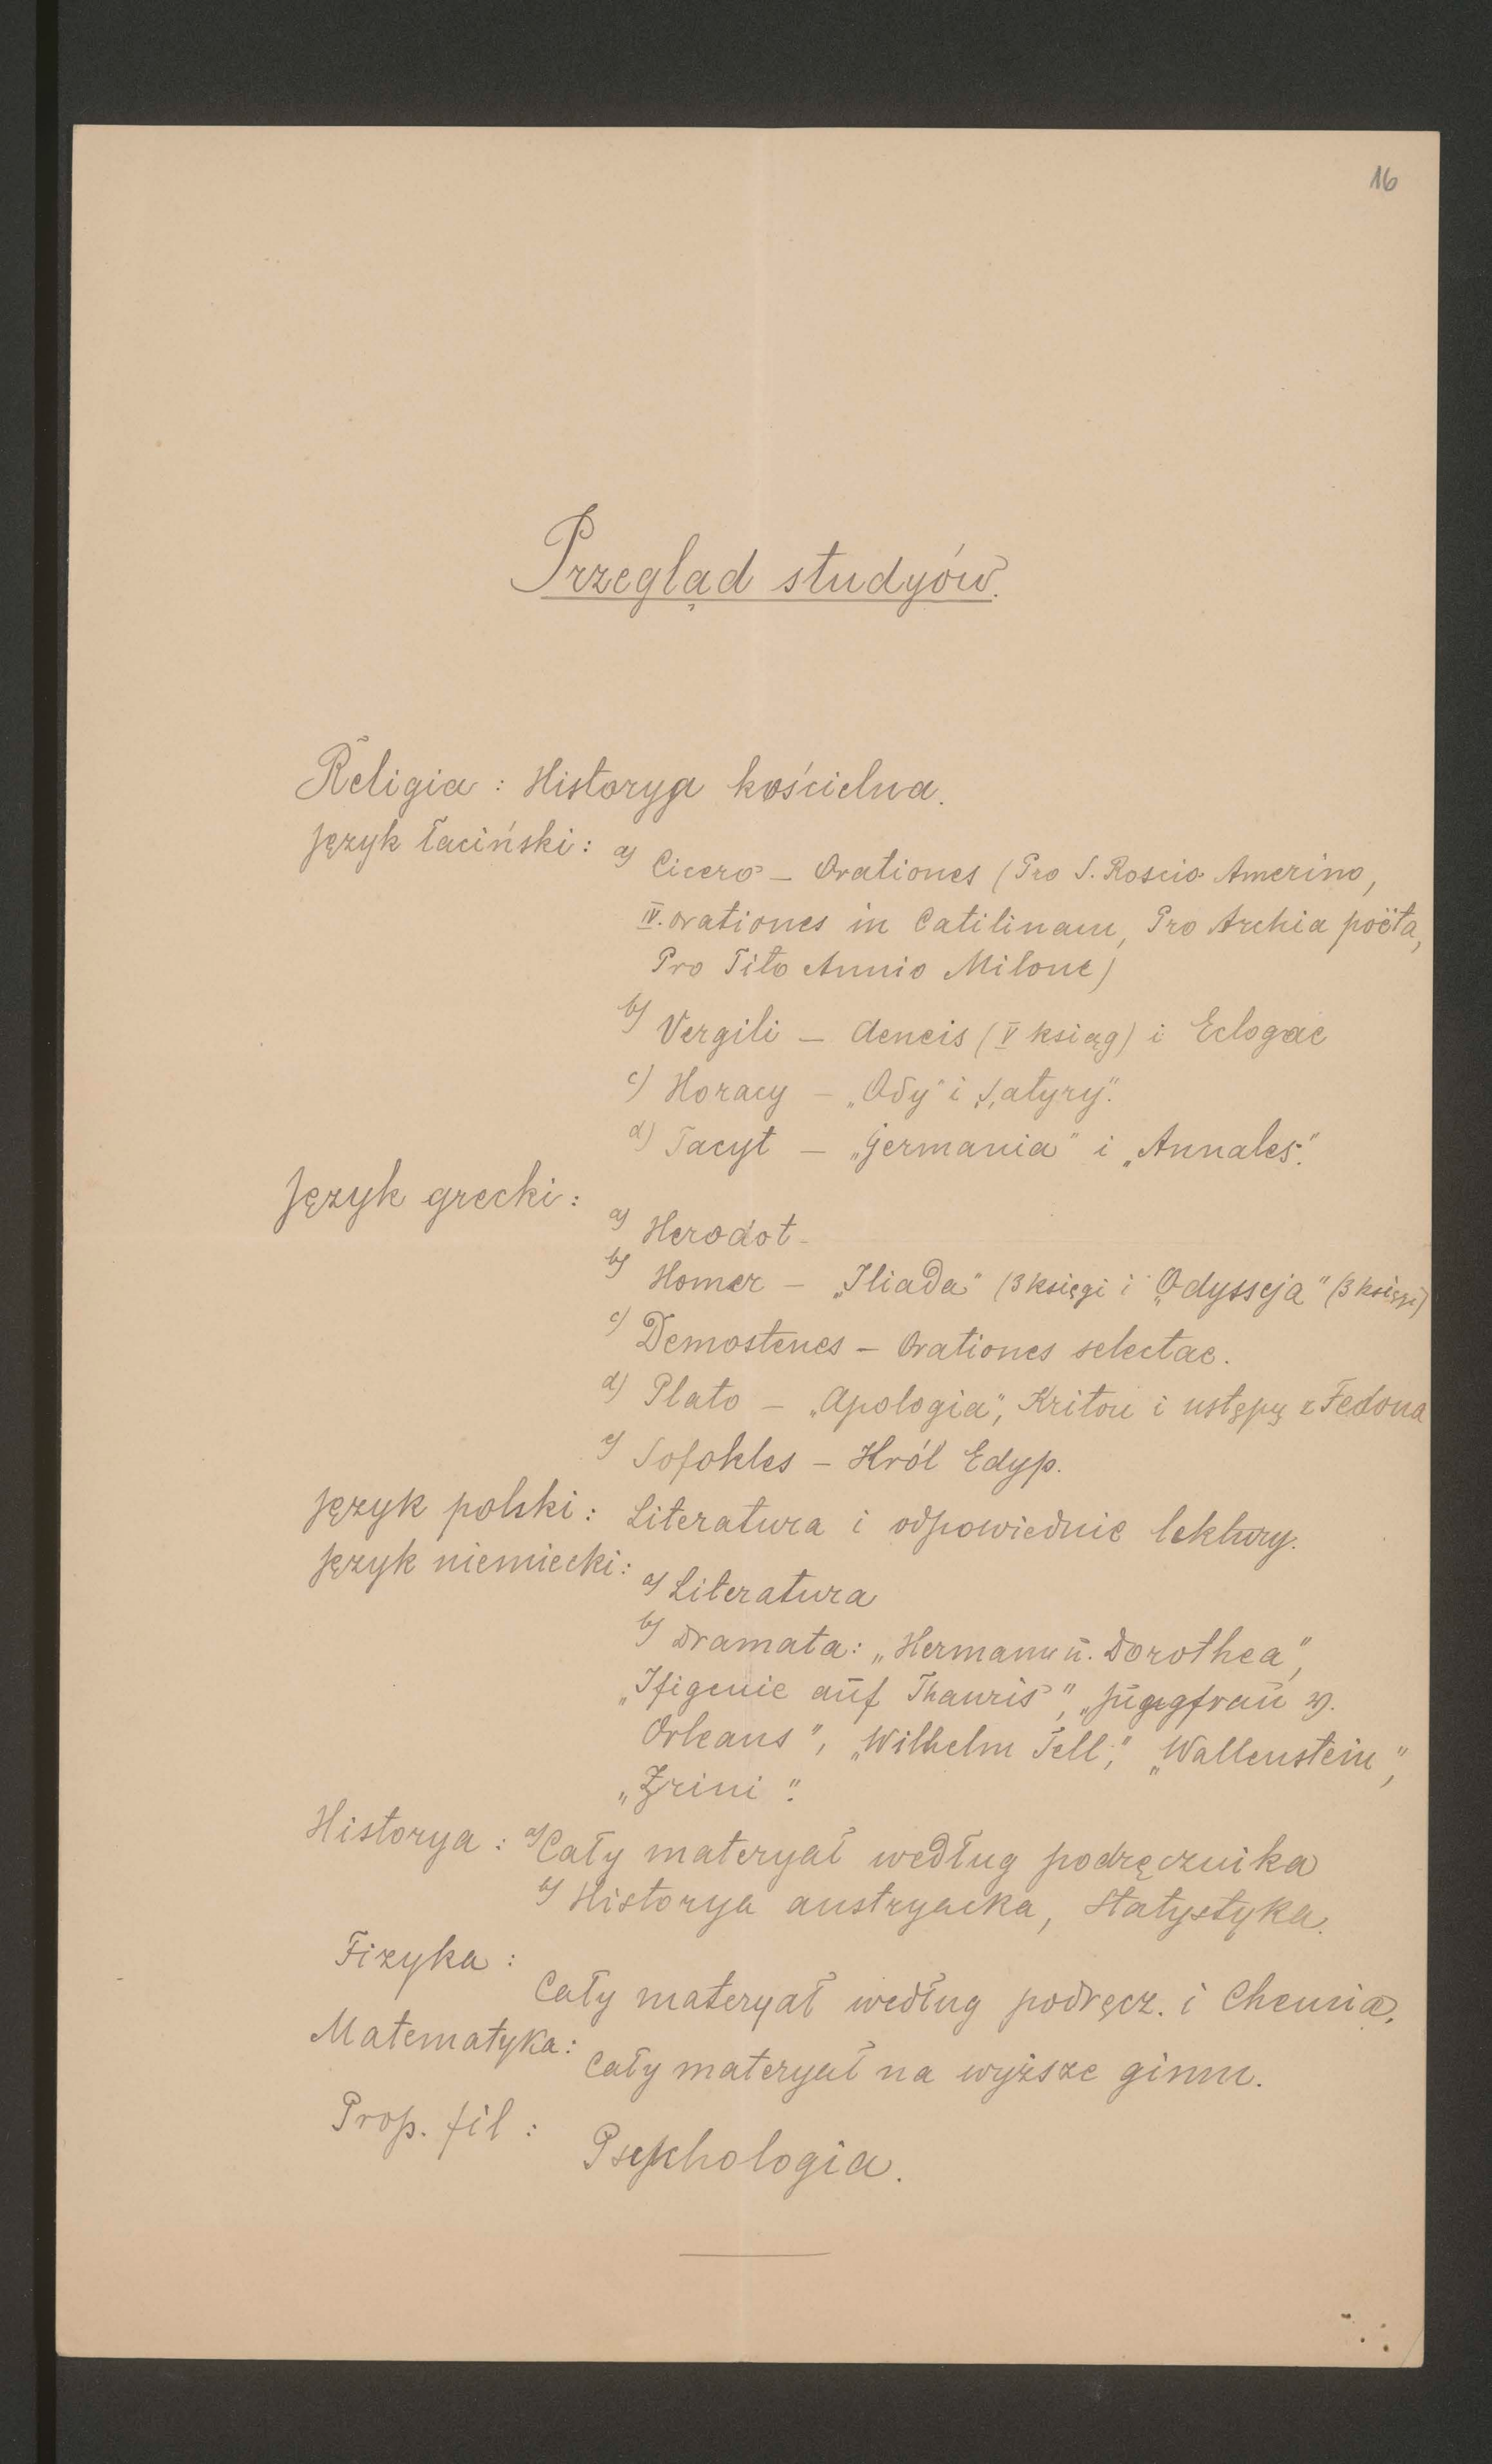 16
Przegląd studyów.
Religia : Historya kościelna.
Język łaciński : a) Cicero – Orationes (Pro S. Roscio Amerino,
IV. orationes in Catilinam, Pro Archia poëta,
Pro Tito Annio Milone)
b) Vergili – Aeneis (V ksiąg) i Eclogae
c) Horacy – „Ody" i „Satyry".
d) Tacyt – „Germania" i „Annales".
Język grecki :
a) Herodot –
b) Homer – „Iliada" (3 księgi i „Odysseja" (3 księgi)
c) Demostenes – Orationes selectae.
d) Plato – „Apologia", Kriton i ustępy z Fedona
e) Sofokles – Król Edyp.
Język polski : Literatura i odpowiednie lektury.
Język niemiecki : a) Literatura
b) Dramata : „Hermann ū. Dorothea",
„Ifigenie aūf Thauris", „Jūgngfraū v.
Orleans", „Wilhelm Tell", „Wallenstein",
„Zrini".
Historya : a) Cały materyał według podręcznika
b) Historya austryacka, Statystyka.
Fizyka :
Cały materyał według podręcz. i Chemia.
Matematyka :
Cały materyał na wyższe gimn.
Prop. fil :
Psychologia.